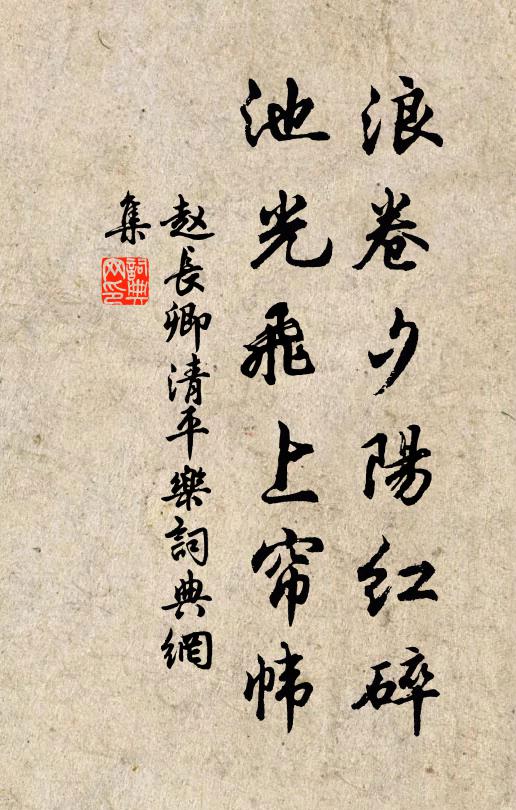 浪卷夕陽红碎
池光飛上帘帏
赵長卿清平樂詞典網
集
詞典
网印